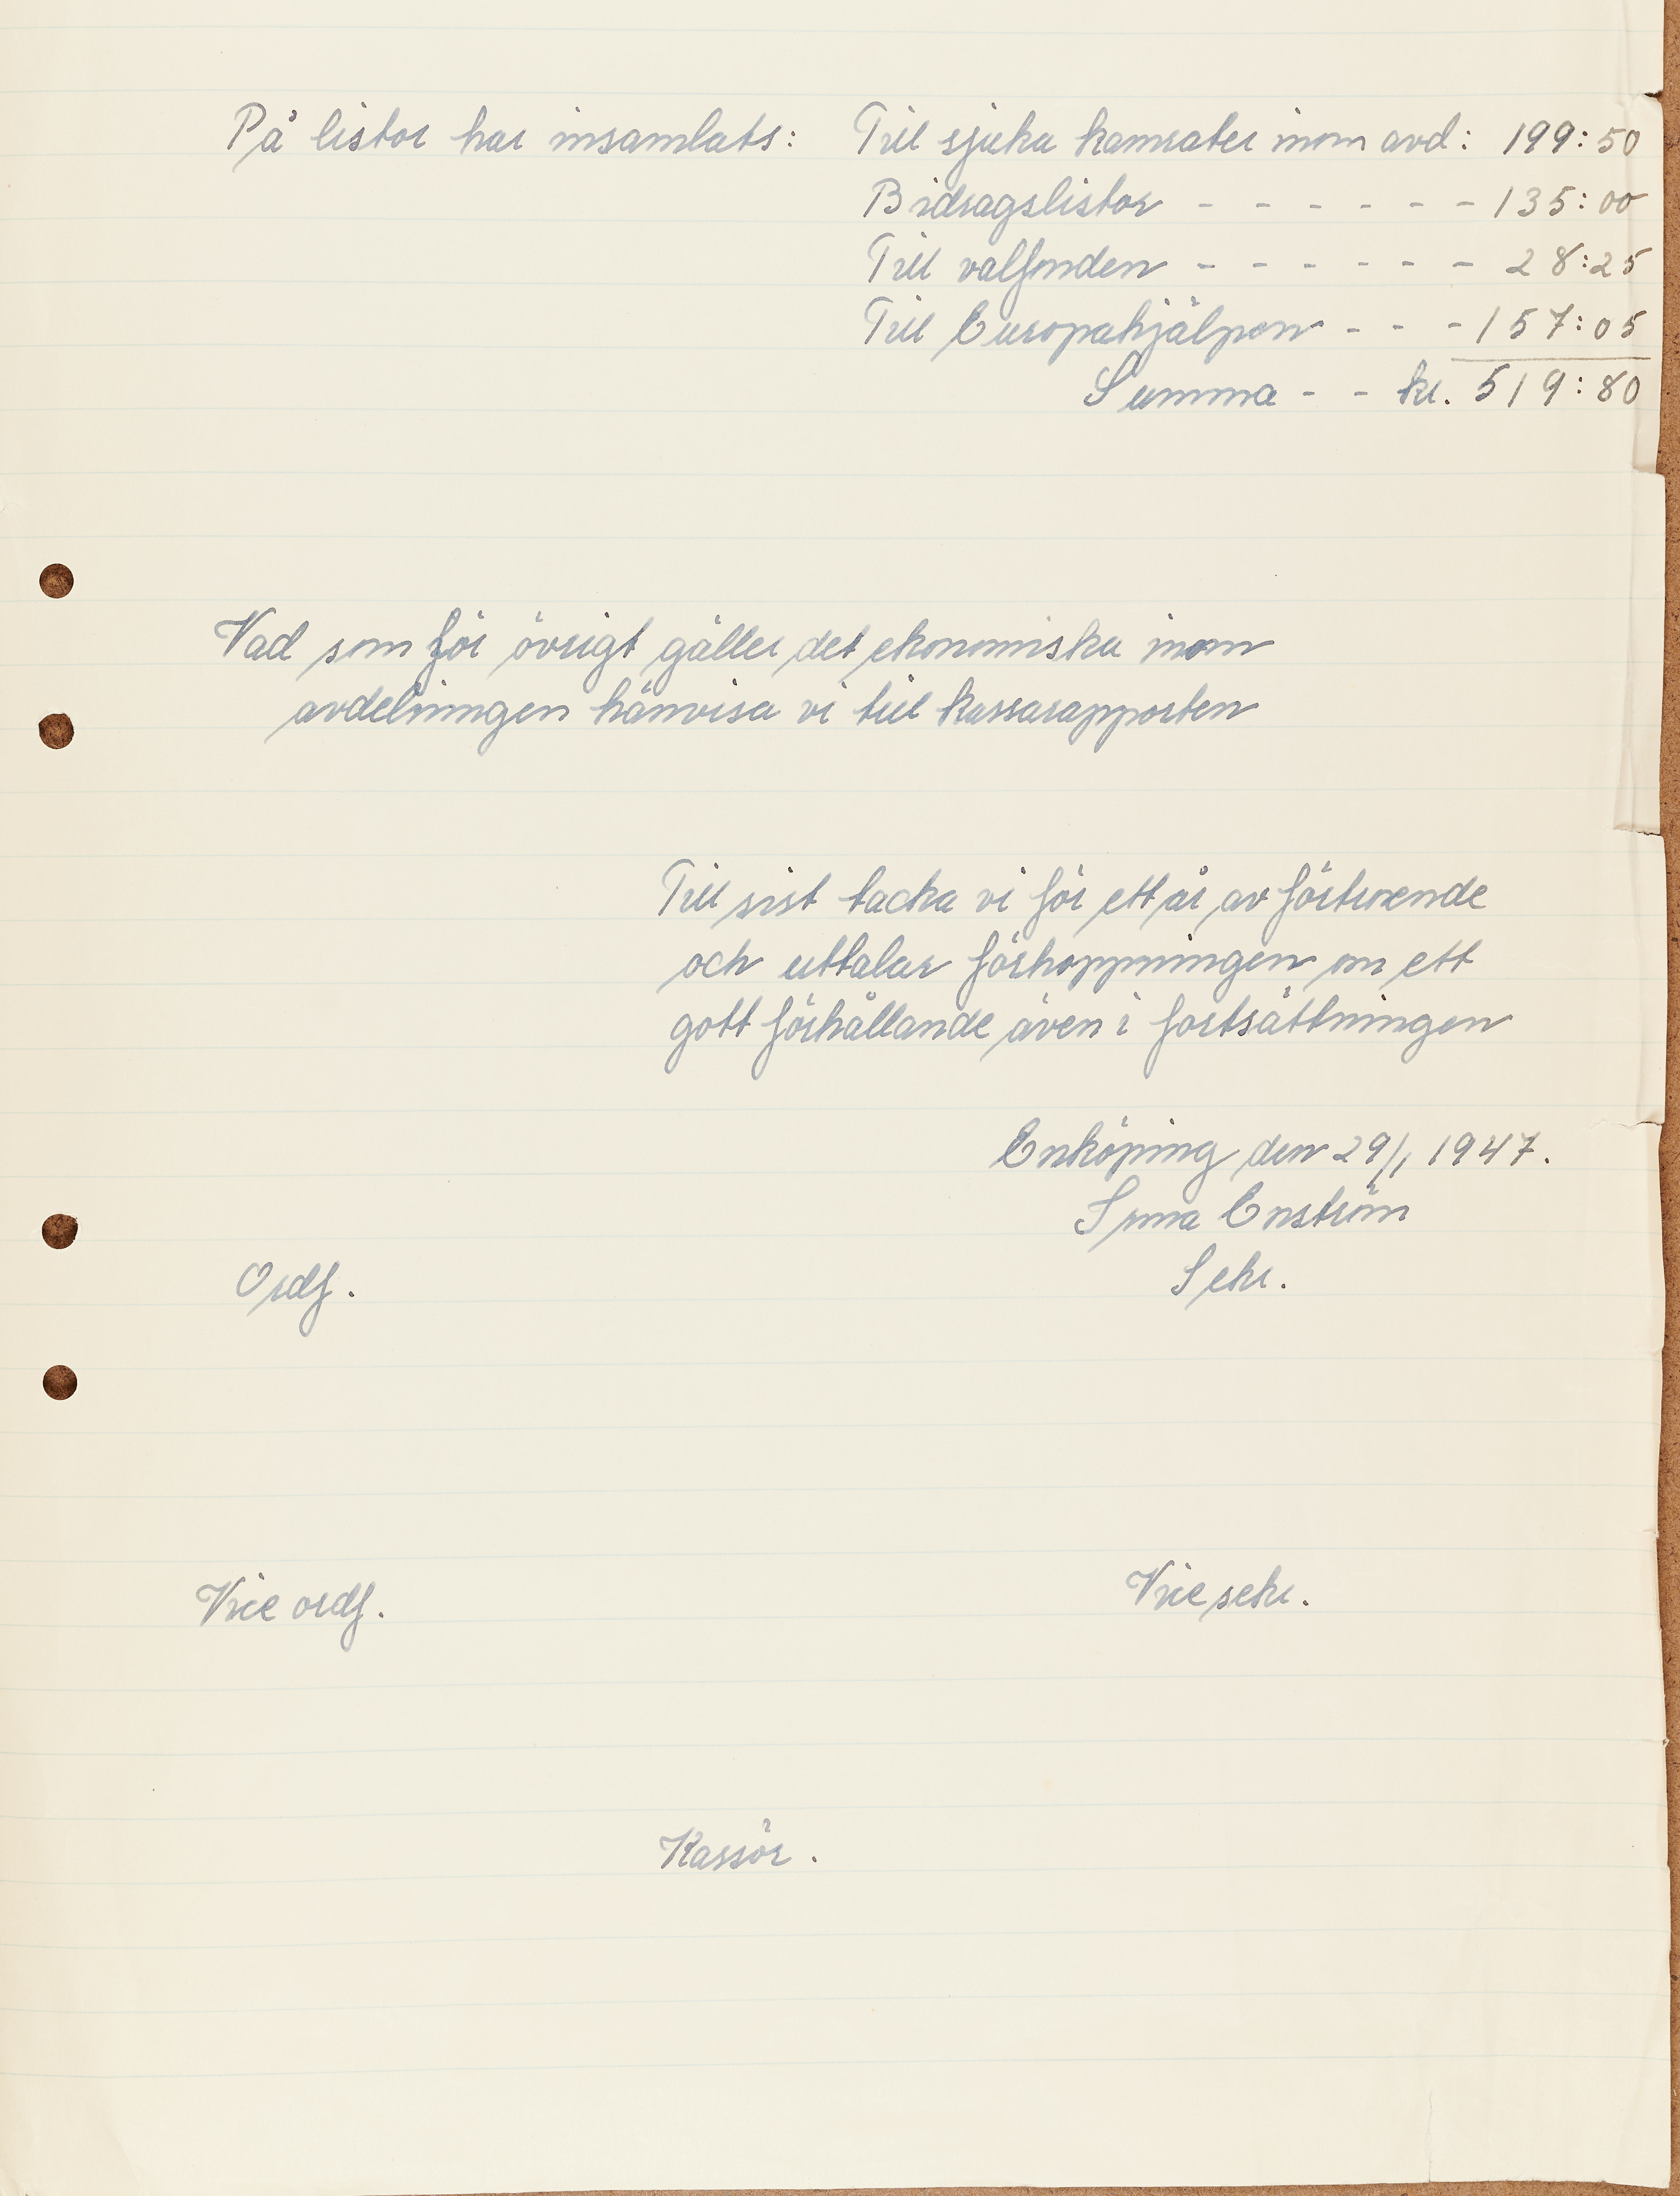 På listor har insamlats: Till sjuka kamrater inom avd: 199:50
Bidragslistor - - - - - - 135:00
Till valfonden - - - - - - 28:25
Till Europahjälpen - - - 157:05
Summa - - kr. 519:80
Vad som för övrigt gäller det ekonomiska inom
avdelningen hänvisa vi till kassarapporten
Till sist tacka vi för ett år av förtroende
och uttalar förhoppningen om ett
gott förhållande även i fortsättningen
Enköping den 29/1 1947.
Enström
Ordf. Sekr.
Vice ordf. Vice sekr.
Kassör.